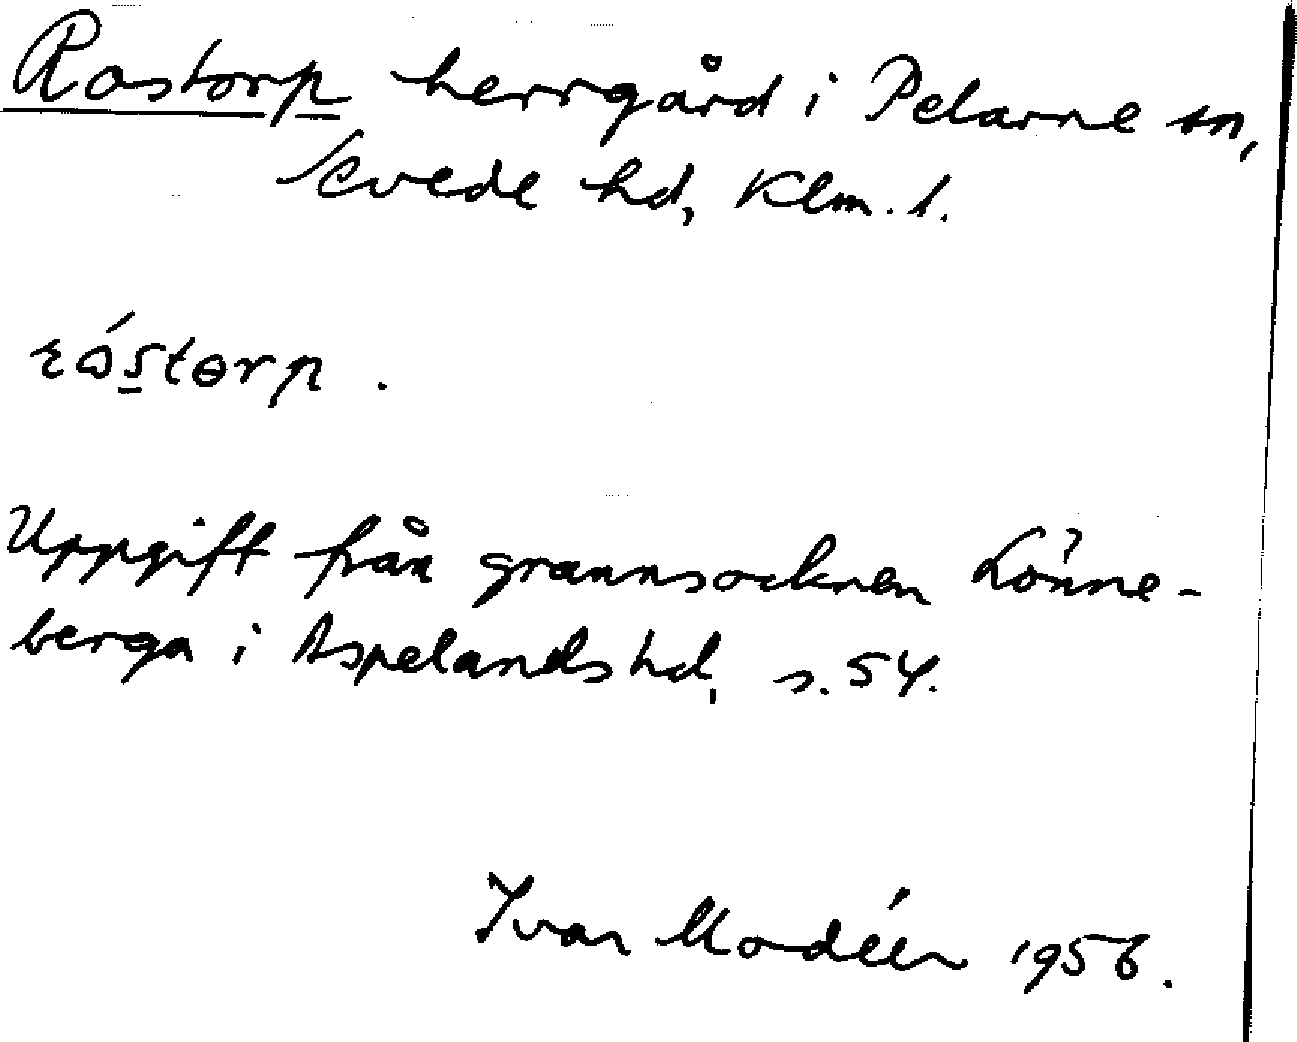 Rostorp herrgård i Pelarne sn,
Sevede hd, Klm. l.
róstorp.
Uppgift från grannsocknen Lönne-
berga i Aspelands hd, s. 54.
Ivar Modéer 1956.